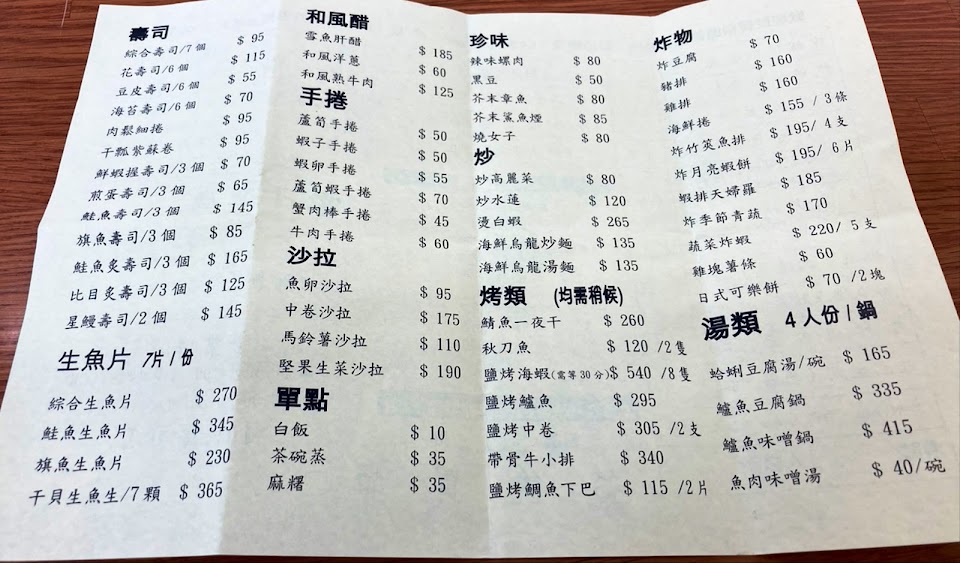 壽司
綜合壽司/7個 $ 95
花壽司/6個 $ 115
豆皮壽司/6個 $ 55
海苔壽司/6個 $ 70
肉鬆細捲 $ 95
干瓢紫蘇卷 $ 95
鮮蝦握壽司/3個 $ 70
煎蛋壽司/3個 $ 65
鮭魚壽司/3個 $ 145
旗魚壽司/3個 $ 85
鮭魚炙壽司/3個 $ 165
比目炙壽司/3個 $ 125
星鰻壽司/2個 $ 145
生魚片 7片/份
綜合生魚片 $ 270
鮭魚生魚片 $ 345
旗魚生魚片 $ 230
干貝生魚生/7顆 $ 365
和風醋
雪魚肝醋 $ 185
和風洋蔥 $ 60
和風熟牛肉 $ 125
手捲
蘆筍手捲 $ 50
蝦子手捲 $ 50
蝦卵手捲 $ 55
蘆筍蝦手捲 $ 70
蟹肉棒手捲 $ 45
牛肉手捲 $ 60
沙拉
魚卵沙拉 $ 95
中卷沙拉 $ 175
馬鈴薯沙拉 $ 110
堅果生菜沙拉 $ 190
單點
白飯 $ 10
茶碗蒸 $ 35
麻糬 $ 35
珍味
辣味螺肉 $ 80
黑豆 $ 50
芥末章魚 $ 80
芥末鯊魚煙 $ 85
燒女子 $ 80
炒
炒高麗菜 $ 80
炒水蓮 $ 120
燙白蝦 $ 265
海鮮烏龍炒麵 $ 135
海鮮烏龍湯麵 $ 135
烤類 (均需稍候)
鯖魚一夜干 $ 260
秋刀魚 $ 120 /2隻
鹽烤海蝦(需等30分) $ 540 /8隻
鹽烤鱸魚 $ 295
鹽烤中卷 $ 305 /2支
帶骨牛小排 $ 340
鹽烤鯛魚下巴 $ 115 /2片
炸物
炸豆腐 $ 70
豬排 $ 160
雞排 $ 160
海鮮捲 $ 155 / 3條
炸竹筴魚排 $ 195/ 4支
炸月亮蝦餅 $ 195/ 6片
蝦排天婦羅 $ 185
炸季節青蔬 $ 170
蔬菜炸蝦 $ 220/ 5支
雞塊薯條 $ 60
日式可樂餅 $ 70 /2塊
湯類 4人份/鍋
蛤蜊豆腐湯/碗 $ 165
鱸魚豆腐鍋 $ 335
鱸魚味噌鍋 $ 415
魚肉味噌湯 $ 40/碗